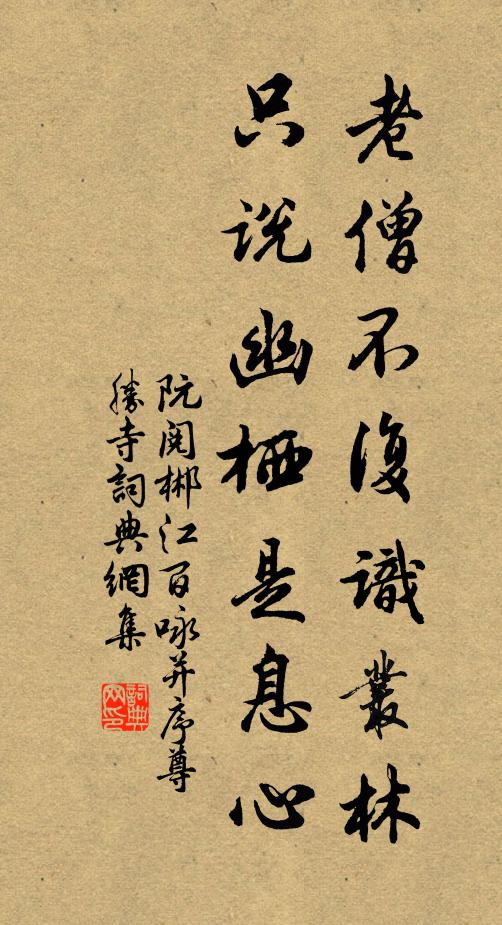 老僧不復識叢林
只説幽栖是息心
阮閱郴江百咏并序尊
勝寺詞典網集
詞典网印